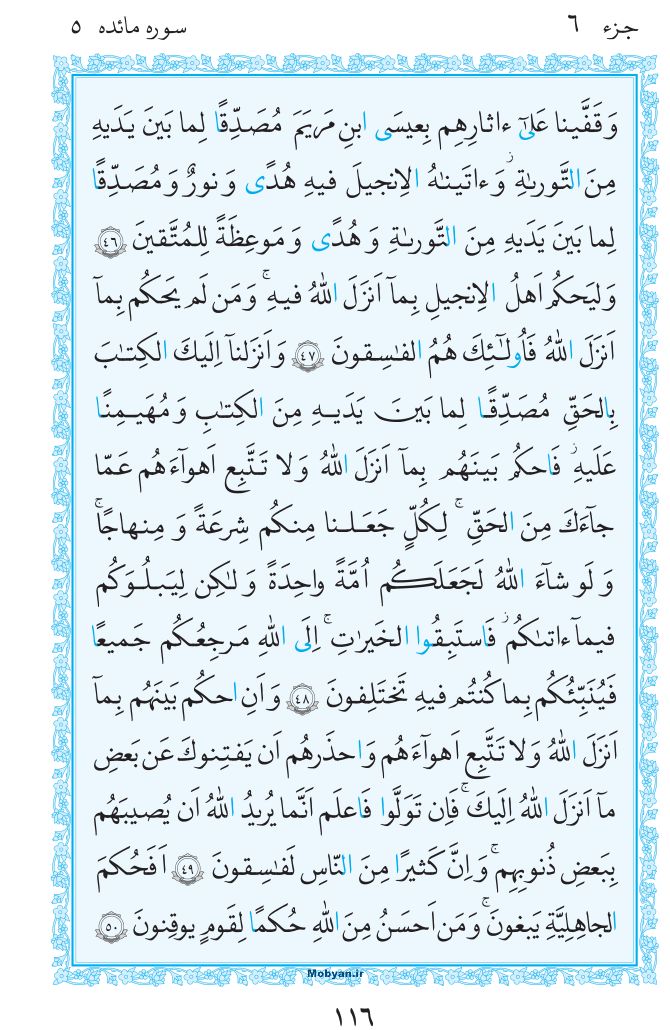 جزء ٦ سوره مائده ٥
وَ قَفَّينا عَلىٰٓ ءاثارِهِم بِعيسَى ابنِ مَريَمَ مُصَدِّقًا لِما بَينَ يَدَيهِ
مِنَ التَّورىٰةِ ۖ وَ ءاتَينٰهُ الاِنجيلَ فيهِ هُدًى وَ نورٌ وَ مُصَدِّقًا
لِما بَينَ يَدَيهِ مِنَ التَّورىٰةِ وَ هُدًى وَ مَوعِظَةً لِلمُتَّقينَ ﴿٤٦﴾
وَليَحكُم اَهلُ الاِنجيلِ بِمآ اَنزَلَ اللهُ فيهِ ۚ وَ مَن لَم يَحكُم بِمآ
اَنزَلَ اللهُ فَاُولٰٓئِكَ هُمُ الفٰسِقونَ ﴿٤٧﴾ وَ اَنزَلنآ اِلَيكَ الكِتٰبَ
بِالحَقِّ مُصَدِّقًا لِما بَينَ يَدَيهِ مِنَ الكِتٰبِ وَ مُهَيمِنًا
عَلَيهِ ۖ فَاحكُم بَينَهُم بِمآ اَنزَلَ اللهُ وَ لا تَتَّبِع اَهوآءَهُم عَمّا
جآءَكَ مِنَ الحَقِّ ۚ لِكُلٍّ جَعَلنا مِنكُم شِرعَةً وَ مِنهاجًا ۚ
وَ لَو شآءَ اللهُ لَجَعَلَكُم اُمَّةً واحِدَةً وَ لٰكِن لِيَبلُوَكُم
فيمآ ءاتىٰكُم ۖ فَاستَبِقُوا الخَيرٰتِ ۚ اِلَى اللهِ مَرجِعُكُم جَميعًا
فَيُنَبِّئُكُم بِما كُنتُم فيهِ تَختَلِفونَ ﴿٤٨﴾ وَ اَنِ احكُم بَينَهُم بِمآ
اَنزَلَ اللهُ وَ لا تَتَّبِع اَهوآءَهُم وَ احذَرهُم اَن يَفتِنوكَ عَن بَعضِ
مآ اَنزَلَ اللهُ اِلَيكَ ۚ فَاِن تَوَلَّوا فَاعلَم اَنَّما يُريدُ اللهُ اَن يُصيبَهُم
بِبَعضِ ذُنوبِهِم ۚ وَ اِنَّ كَثيرًا مِنَ النّاسِ لَفٰسِقونَ ﴿٤٩﴾ اَفَحُكمَ
الجاهِلِيَّةِ يَبغونَ ۚ وَ مَن اَحسَنُ مِنَ اللهِ حُكمًا لِقَومٍ يوقِنونَ ﴿٥٠﴾
Mobyan.ir
١١٦